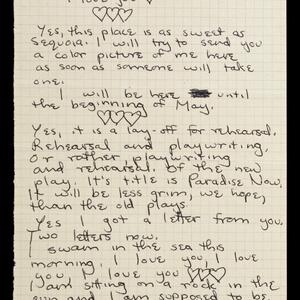 I love you
Yes, this place is as sweet as
Sequoia. I will try to send you
a color picture of me here
as soon as someone will take
one.
I will be here until
the beginning of May.
Yes, it is a lay-off for rehearsal.
Rehearsal and playwriting,
Or rather, playwriting
and rehearsal. Of the new
play. It's title is Paradise Now.
It will be less grim, we hope,
than the old plays.
Yes I got a letter from you.
Two letters now.
I swam in the sea this
morning. I love you, I love
you, I love you
I am sitting on a rock in the
sun and I am supposed to be